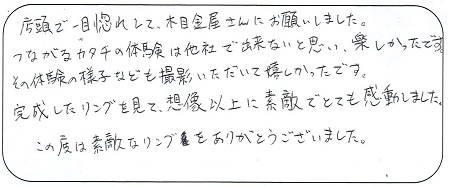 店頭で一目惚れして、木目金屋さんにお願いしました。
つながるカタチの体験は他社で出来ないと思い、楽しかったです
その体験の様子なども撮影いただいて嬉しかったです。
完成したリングを見て、想像以上に素敵でとても感動しました。
この度は素敵なリングをありがとうございました。